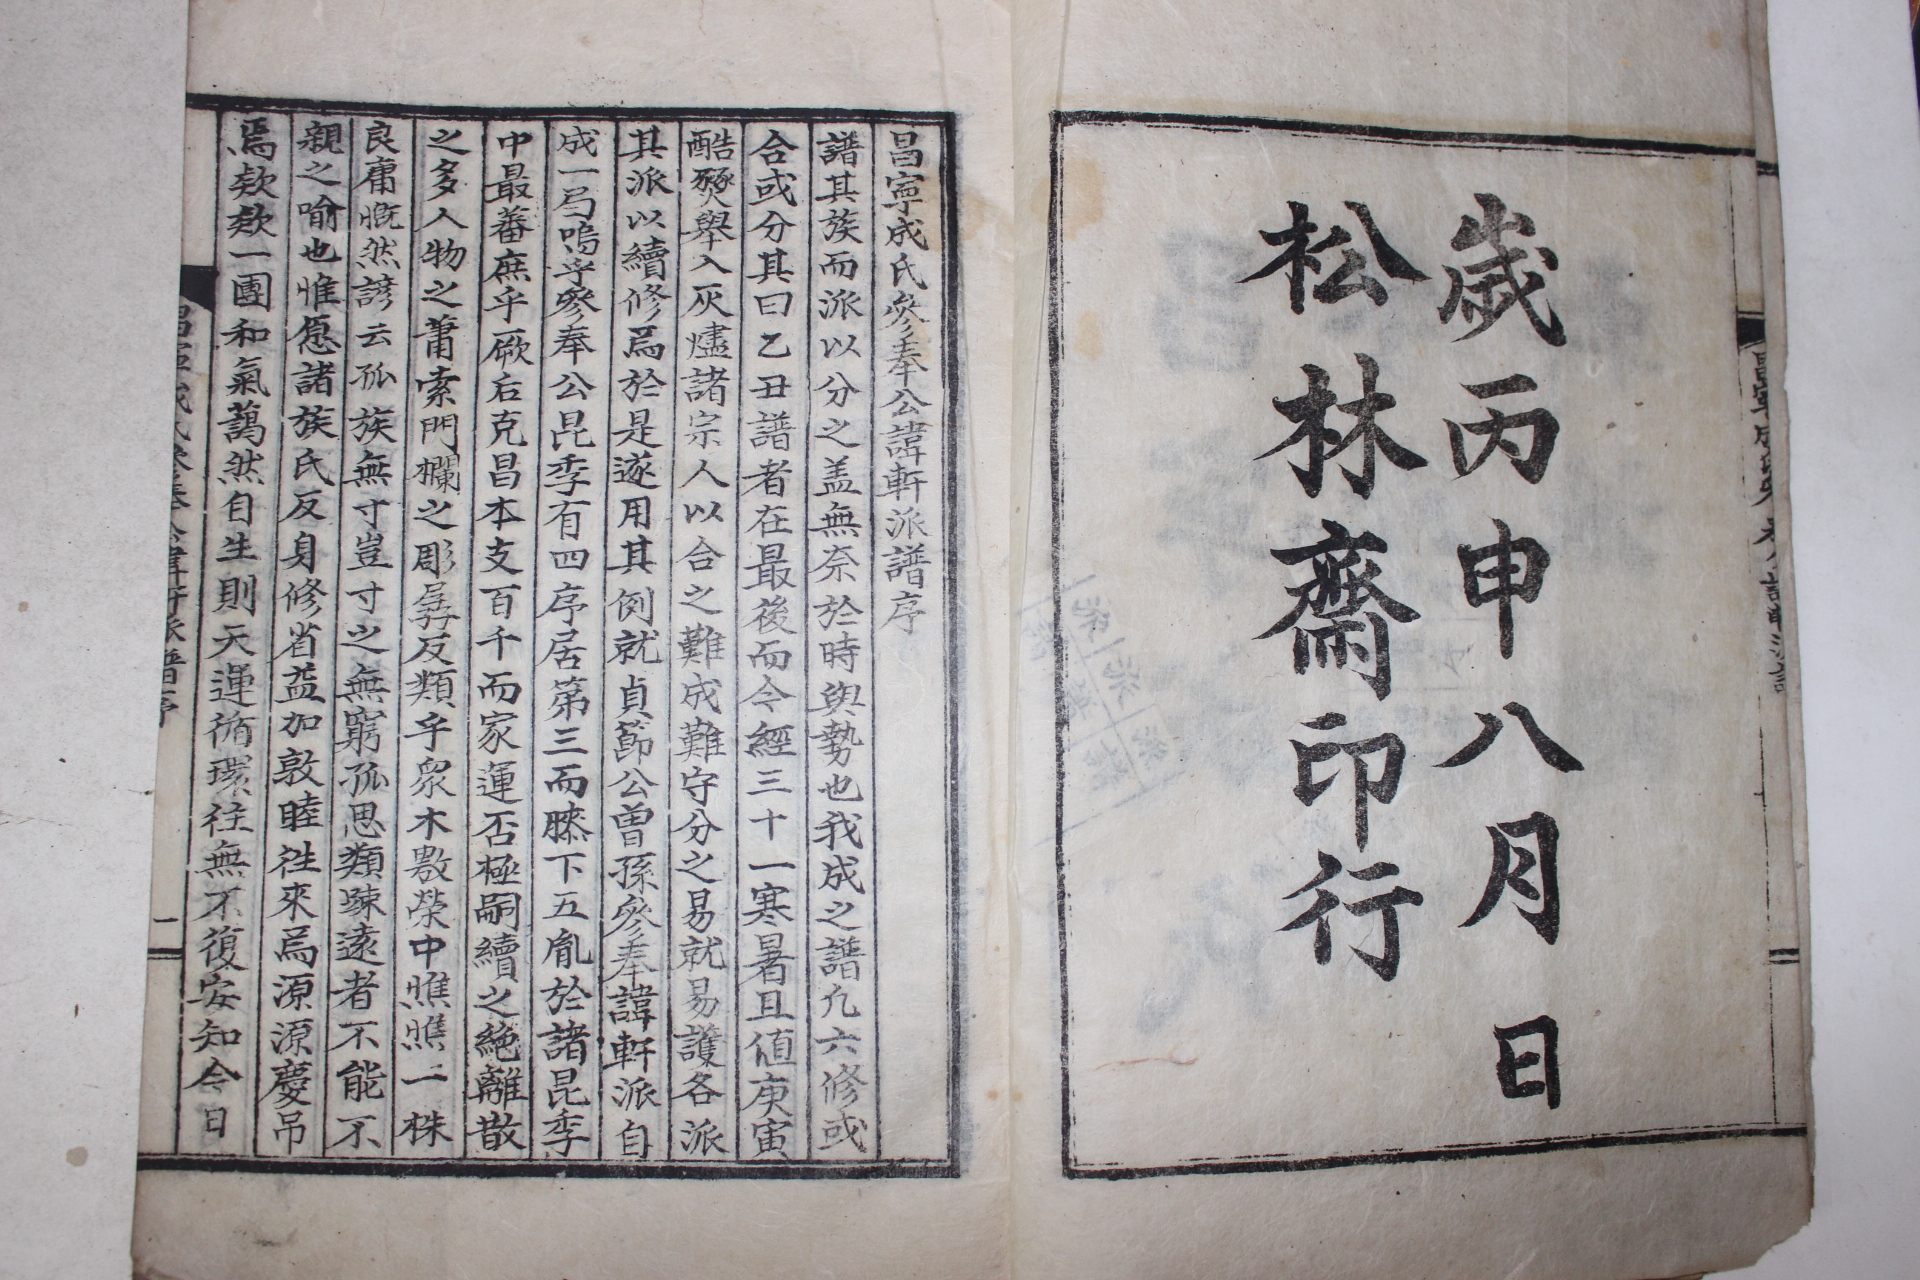 歲丙申八月 日
松林齋印行
昌寧成氏參奉公諱軒派譜序
譜其族而派以分之盖無奈於時與勢也我成之譜凡六修或
合或分其曰乙丑譜者在最後而今經三十一寒暑且値庚寅
酷燹擧入灰燼諸宗人以合之難成難守分之易就易護各派
其派以續修焉於是遂用其例就貞節公曾孫參奉諱軒派自
成一弓嗚乎參奉公昆季有四序居第三而膝下五胤於諸昆季
中最蕃庶乎厥后克昌本支百千而家運否極嗣續之絶離散
之多人物之蕭索門欄之彫孱反類乎衆木敷榮中憔憔一株
良庸慨然諺云孤族無寸豈寸之無窮孤思類踈遠者不能不
親之喻也惟愿諸族氏反身修省益加敦睦徃來焉源源慶吊
焉欸欸一團和氣藹然自生則天運循環徃無不復安知今日
昌寧成氏參奉公諱軒派譜序
一